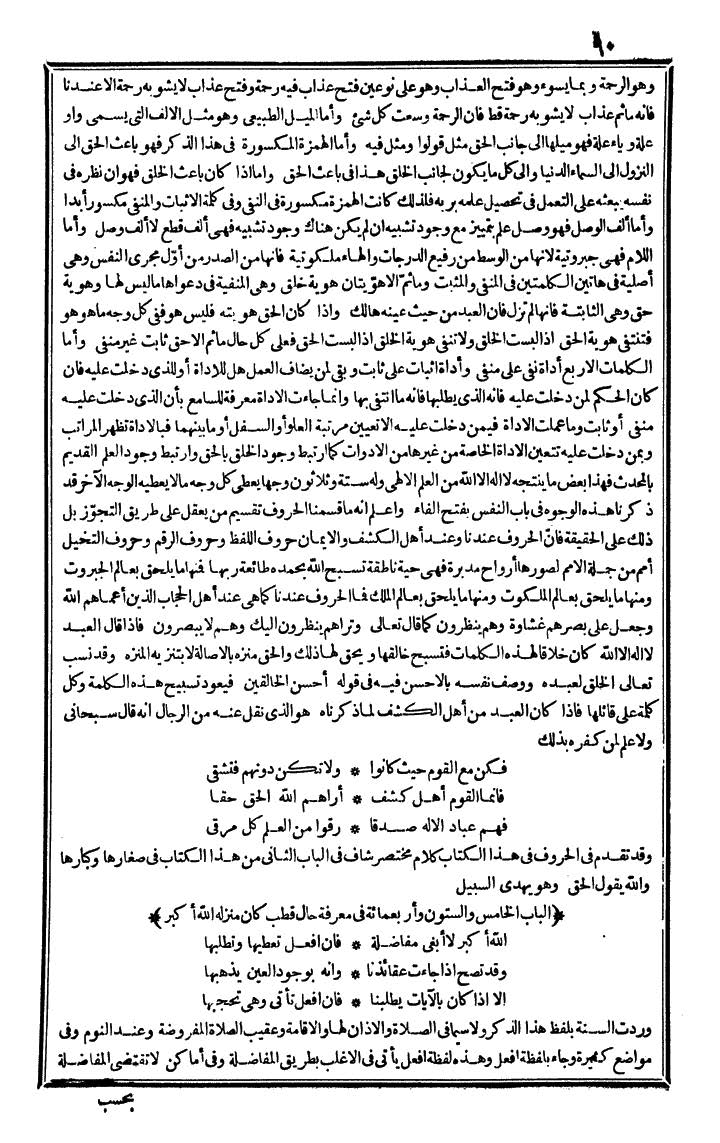 ٩٠
وهو الرحمة وبما يسوء وهو فتح العذاب وهو على نوعين فتح عذاب فيه رحمة وفتح عذاب لا يشوبه رحمة الا عندنا
فانه ماثم عذاب لا يشوبه رحمة قط فان الرحمة وسعت كل شئ وأما الميل الطبيعى وهو مثل الالف التى يسمى واو
علة وياء علة فهو ميلها الى جانب الحق مثل قولوا ومثل فيه وأما الهمزة المكسورة فى هذا الذكر فهو باعث الحق الى
النزول الى السماء الدنيا والى كل ما يكون لجانب الخلق هذا فى باعث الحق واما اذا كان باعث الخلق فهو ان نظره فى
نفسه يبعثه على التعمل فى تحصيل علمه بربه فلذلك كانت الهمزة مكسورة فى النفى وفى كلمة الاثبات والمنفى مكسور أبدا
وأما ألف الوصل فهو وصل علم بتمييز مع وجود تشبيه ان لم يكن هناك وجود تشبيه فهى ألف قطع لا ألف وصل وأما
اللام فهى جبروتية لانها من الوسط من رفيع الدرجات والهاء ملكوتية فانها من الصدر من أول مجرى النفس وهى
أصلية فى هاتين الكلمتين فى المنفى والمثبت وماثم الا هويتان هوية خلق وهى المنفية فى دعواها ما ليس لها وهوية
حق وهى الثابتة فانها لم تزل فان العبد من حيث عينه هالك واذا كان الحق هويته فليس هو فى كل وجه ما هو هو
فتنتفى هوية الحق اذا لبست الخلق ولا تنفى هوية الخلق اذا لبست الحق فعلى كل حال ماثم الا حق ثابت غير منفى وأما
الكلمات الاربع أداة نفى على منفى وأداة اثبات على ثابت وبقى لمن يضاف العمل هل للاداة أو للذى دخلت عليه فان
كان الحكم لمن دخلت عليه فانه الذى يطلبها فانه ما انتفى بها وانما جاءت الاداة معرفة للسامع بأن الذى دخلت عليه
منفى أو ثابت وما عملت الاداة فيمن دخلت عليه الا تعيين مرتبة العلو أو السفل أو ما بينهما فبالاداة تظهر المراتب
وبمن دخلت عليه تتعين الاداة الخاصة من غيرها من الادوات كما ارتبط وجود الخلق بالحق وارتبط وجود العلم القديم
بالمحدث فهذا بعض ما ينتجه لا اله الا الله من العلم الالهى وله ستة وثلاثون وجها يعطى كل وجه ما لا يعطيه الوجه الآخر قد
ذكرنا هذه الوجوه فى باب النفس بفتح الفاء واعلم انه ما قسمنا الحروف تقسيم من يعقل على طريق التجوّز بل
ذلك على الحقيقة فانّ الحروف عندنا وعند أهل الكشف والايمان حروف اللفظ وحروف الرقم وحروف التخيل
أمم من جملة الامم لصورها أرواح مدبرة فهى حية ناطقة تسبح الله بحمده طائعة ربها فمنها ما يلحق بعالم الجبروت
ومنها ما يلحق بعالم الملكوت ومنها ما يلحق بعالم الملك فما الحروف عندنا كما هى عند أهل الحجاب الذين أعماهم الله
وجعل على بصرهم غشاوة وهم ينظرون كما قال تعالى وتراهم ينظرون اليك وهم لا يبصرون فاذا قال العبد
لا اله الا الله كان خلاقا لهذه الكلمات فتسبح خالقها ويحق لها ذلك والحق منزه بالاصالة لا بتنزيه المنزه وقد نسب
تعالى الخلق لعبده ووصف نفسه بالاحسن فيه فى قوله أحسن الخالقين فيعود تسبيح هذه الكلمة وكل
كلمة على قائلها فاذا كان العبد من أهل الكشف لما ذكرناه هو الذى نقل عنه من الرجال انه قال سبحانى
ولا علم لمن كفره بذلك
فكن مع القوم حيث كانوا * ولا تكن دونهم فتشقى
فانما القوم أهل كشف * أراهم الله الحق حقا
فهم عباد الاله صدقا * رقوا من العلم كل مرقى
وقد تقدم فى الحروف فى هذا الكتاب كلام مختصر شاف فى الباب الثانى من هذا الكتاب فى صغارها وكبارها
والله يقول الحق وهو يهدى السبيل
﴿الباب الخامس والستون وأربعمائة فى معرفة حال قطب كان منزله الله أكبر﴾
الله أكبر لا أبغى مفاضلة * فان افعل تعطيها وتطلبها
وقد تصح اذا جاءت عقائدنا * وانه بوجود العين يذهبها
الا اذا كان بالآيات يطلبنا * فان افعل تأتى وهى تحجبها
وردت السنة بلفظ هذا الذكر ولا سيما فى الصلاة والاذان لها والاقامة وعقيب الصلاة المفروضة وعند النوم وفى
مواضع كثيرة وجاء بلفظة افعل وهذه لفظة افعل يأتى فى الاغلب بطريق المفاضلة وفى أماكن لا تقتضى المفاضلة
بحسب